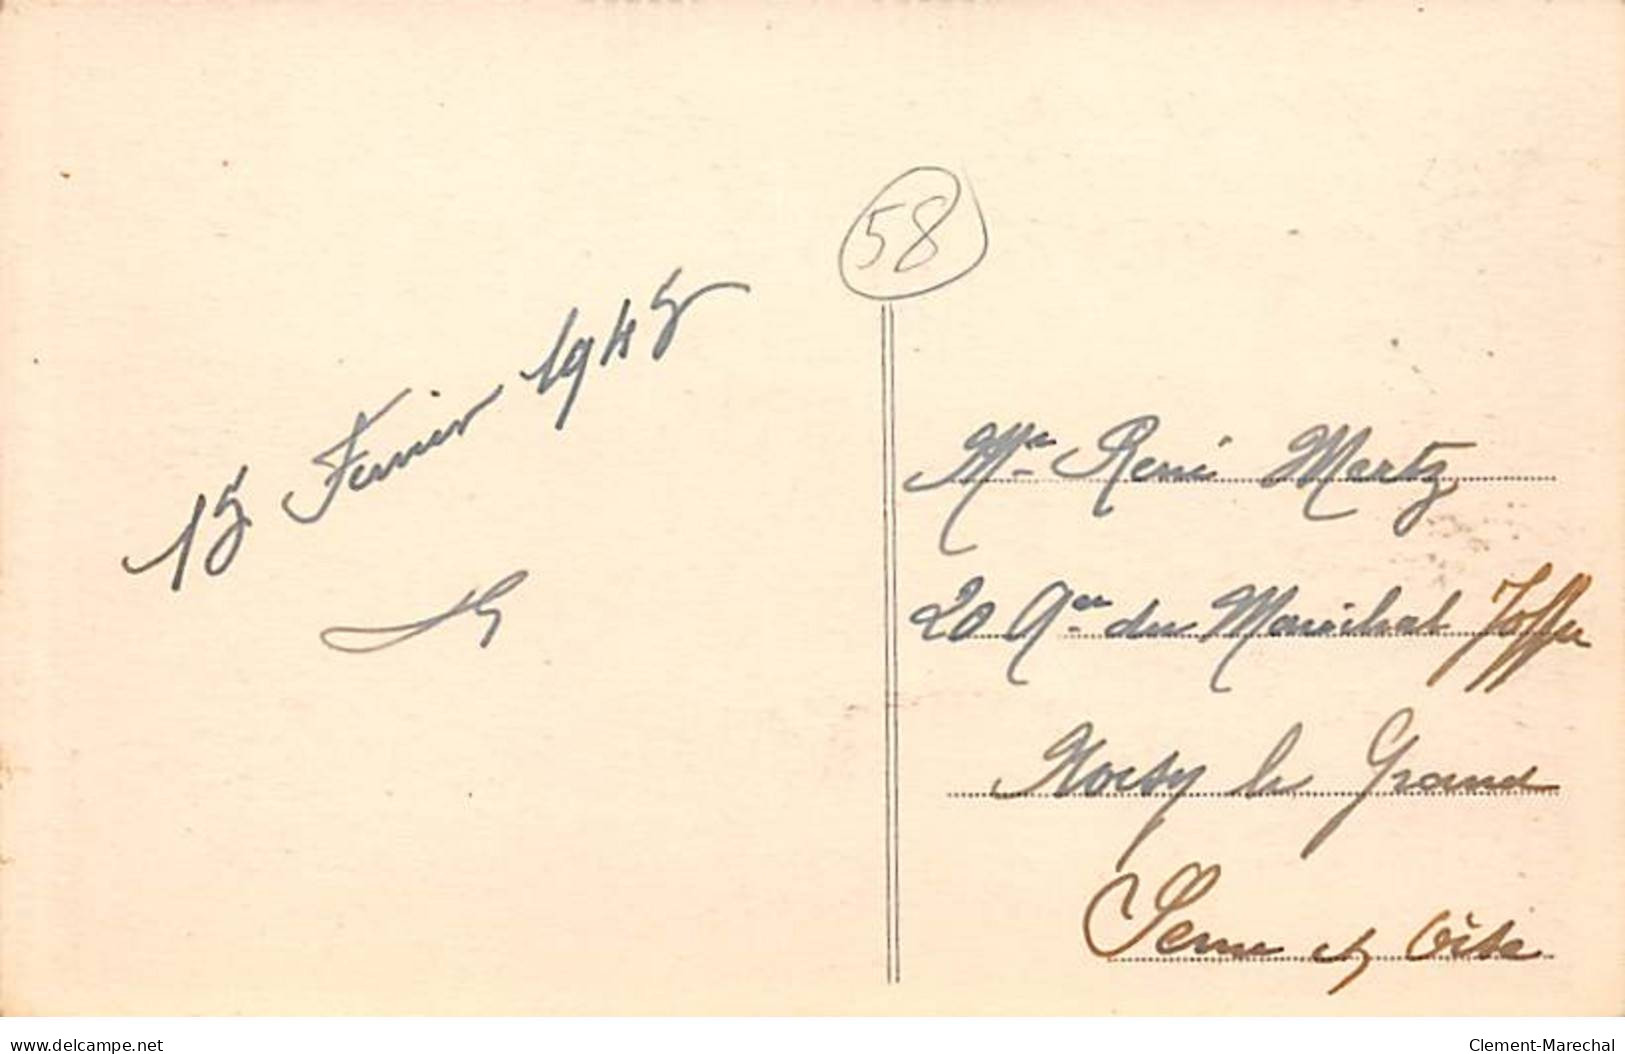 58
15 Fevrier 1945
Me René Martz
20 Aue du Maréchal Joffre
Noisy le Grand
Seine et Oise
www.delcampe.net
Clement-Marechal